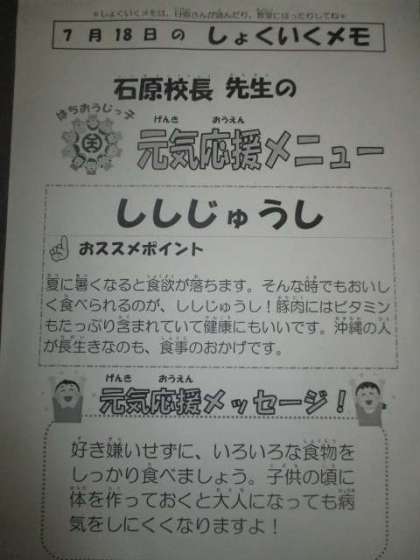 ＊しょくいくメモは、日直さんが読んだり、教室にはったりしてね＊
7月18日の しょくいくメモ
石原校長 先生の
はちおうじっ子
げんき おうえん
元気応援メニュー
ししじゅうし
おススメポイント
夏に暑くなると食欲が落ちます。そんな時でもおいし
く食べられるのが、ししじゅうし！豚肉にはビタミン
もたっぷり含まれていて健康にもいいです。沖縄の人
が長生きなのも、食事のおかげです。
げんき おうえん
元気応援メッセージ！
好き嫌いせずに、いろいろな食物を
しっかり食べましょう。子供の頃に
体を作っておくと大人になっても病
気をしにくくなりますよ！